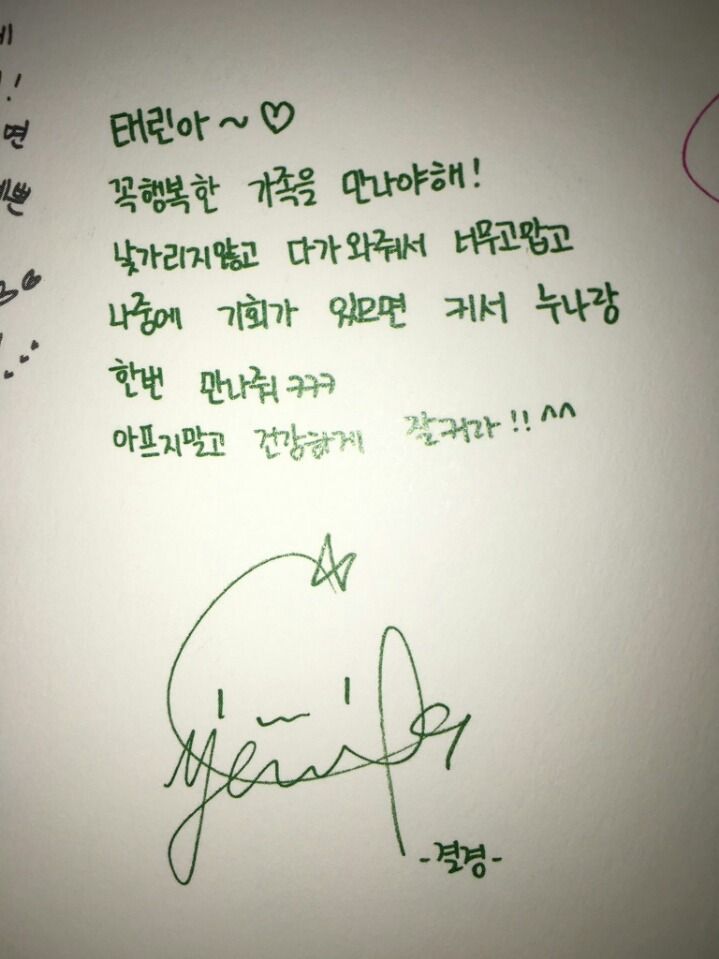 태린아~♡
꼭행복한 가족을 만나야해!
낯가리지않고 다가와줘서 너무고맙고
나중에 기회가 있으면 커서 누나랑
한번 만나줘 ㅋㅋㅋ
아프지말고 건강하게 잘커라!! ^^
-결경-